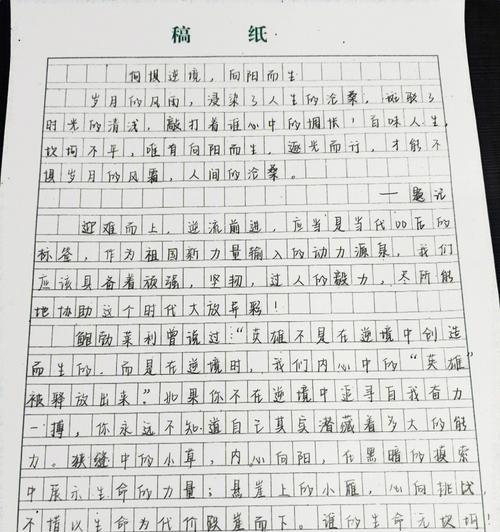 稿 纸
何惧逆境，向阳而生
岁月的风雨，浸染了人生的沧桑，斑驳了
时光的清浅，敲打着谁心中的惆怅！百味人生，
坎坷不平，唯有向阳而生，逐光而行，才能不
惧岁月的风霜，人间的沧桑。
——题记
迎难而上，逆流前进，应当是当代00后的
标签，作为祖国新力量输入的动力源泉，我们
应该具备着顽强，坚韧，过人的毅力，尽所能
地协助这个时代大放异彩！
鲍勃莱利曾说过：“英雄不是在逆境中创造
而生的，而是在逆境时，我们内心中的“英雄”
被释放出来”如果你不在逆境中追寻自我奋力
一搏，你永远不知道自己其实潜藏着多大的能
力。狭缝中的小草，内心向阳，在黑暗的摸索
中展示生命的力量；悬崖上的小雁，心向挑战，
不惜以生命为代价跌崖而下。谁的生命无坎坷！